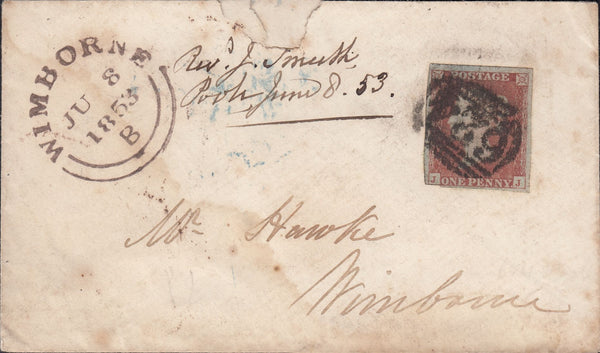 WIMBORNE
JU 8
1853
B
Revd. J. Smith
Poole June 8. 53.
POSTAGE
J J
ONE PENNY
Mr Hawke
Wimborne